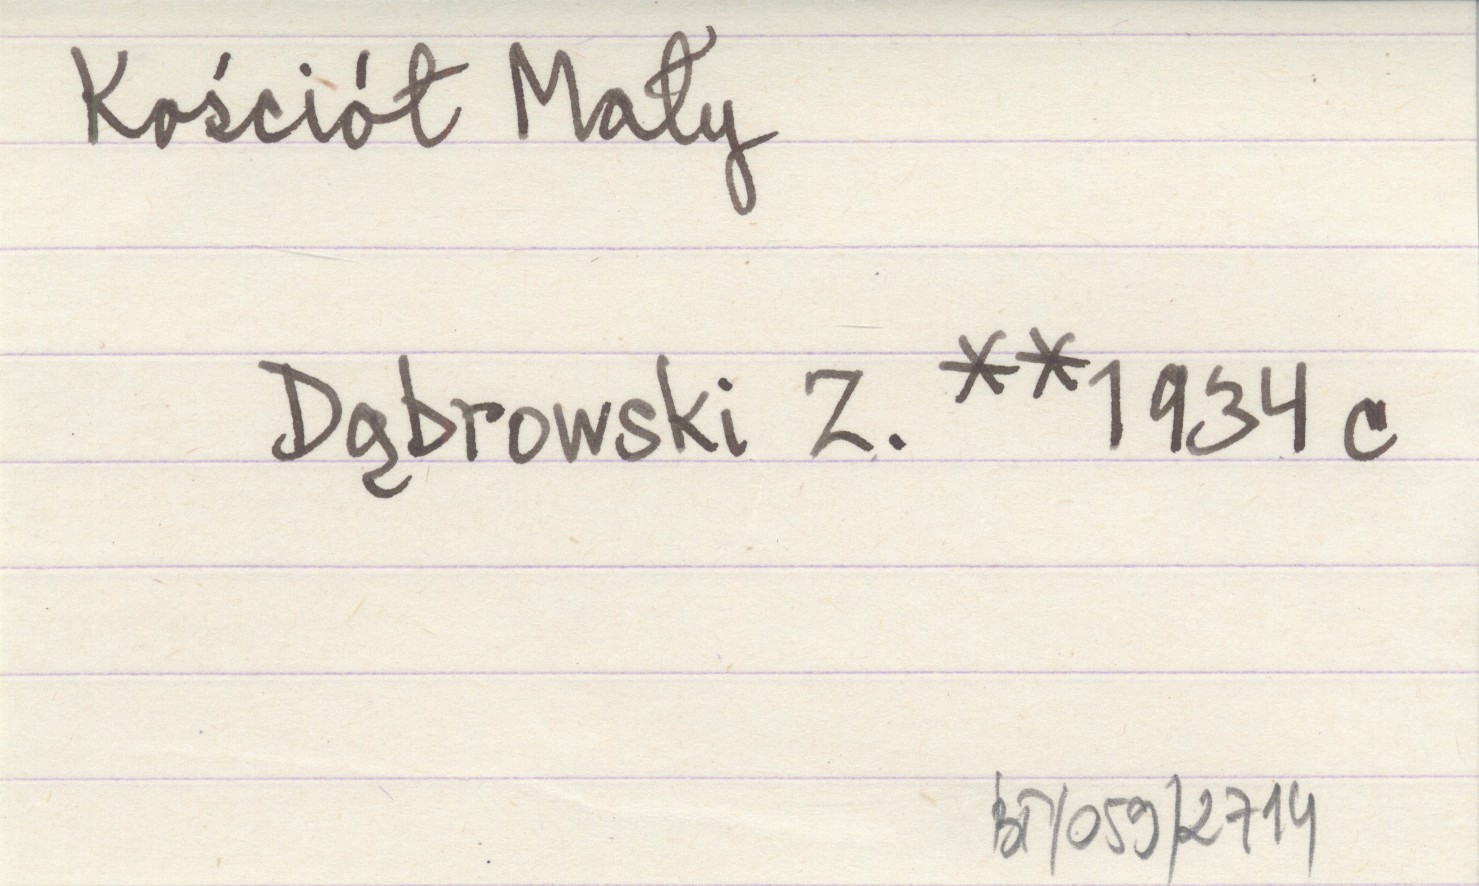 Kościół Mały
Dąbrowski Z. **1934 c
BT/059/2714